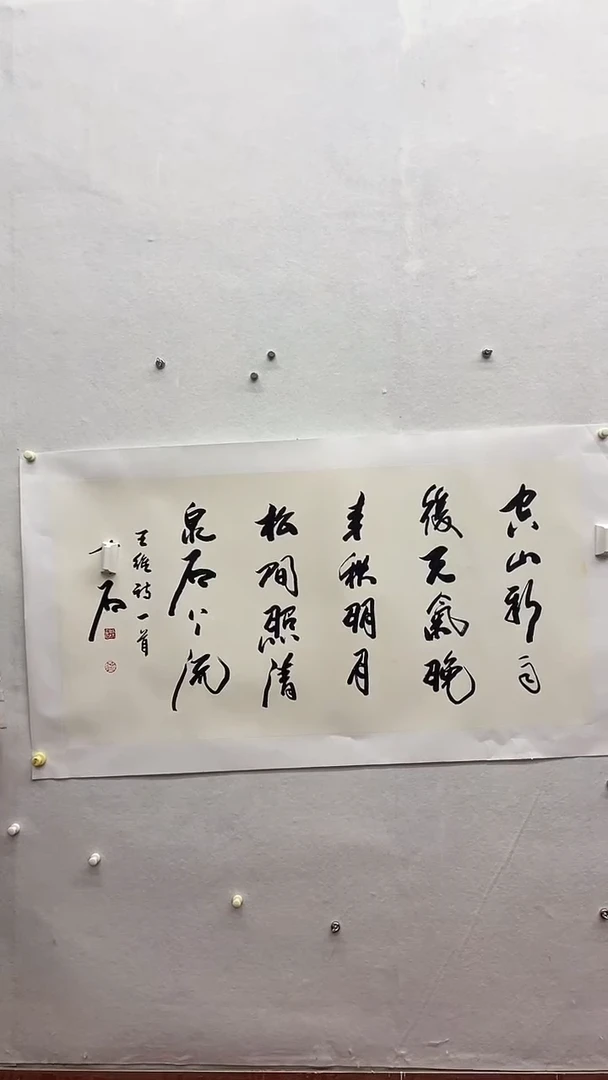 空山新雨
後天氣晚
来秋明月
松間照清
泉石上流
王維詩一首
石